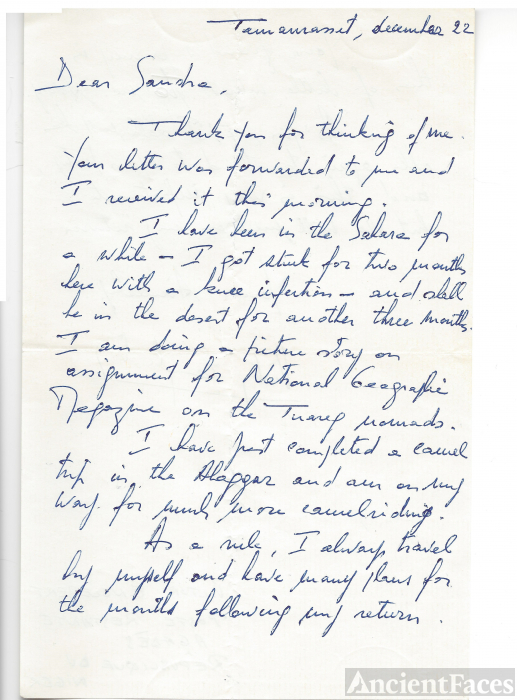 Tamanrasset, december 22
Dear Sandra,
Thank you for thinking of me.
Your letter was forwarded to me and
I received it this morning.
I have been in the Sahara for
a while – I got stuck for two months
here with a knee infection – and shall
be in the desert for another three months.
I am doing a picture story on
assignment for National Geographic
Magazine on the Tuareg nomads.
I have just completed a camel
trip in the Hoggar and am on my
way for much more camelriding.
As a rule, I always travel
by myself and have many plans for
the months following my return.
AncientFaces